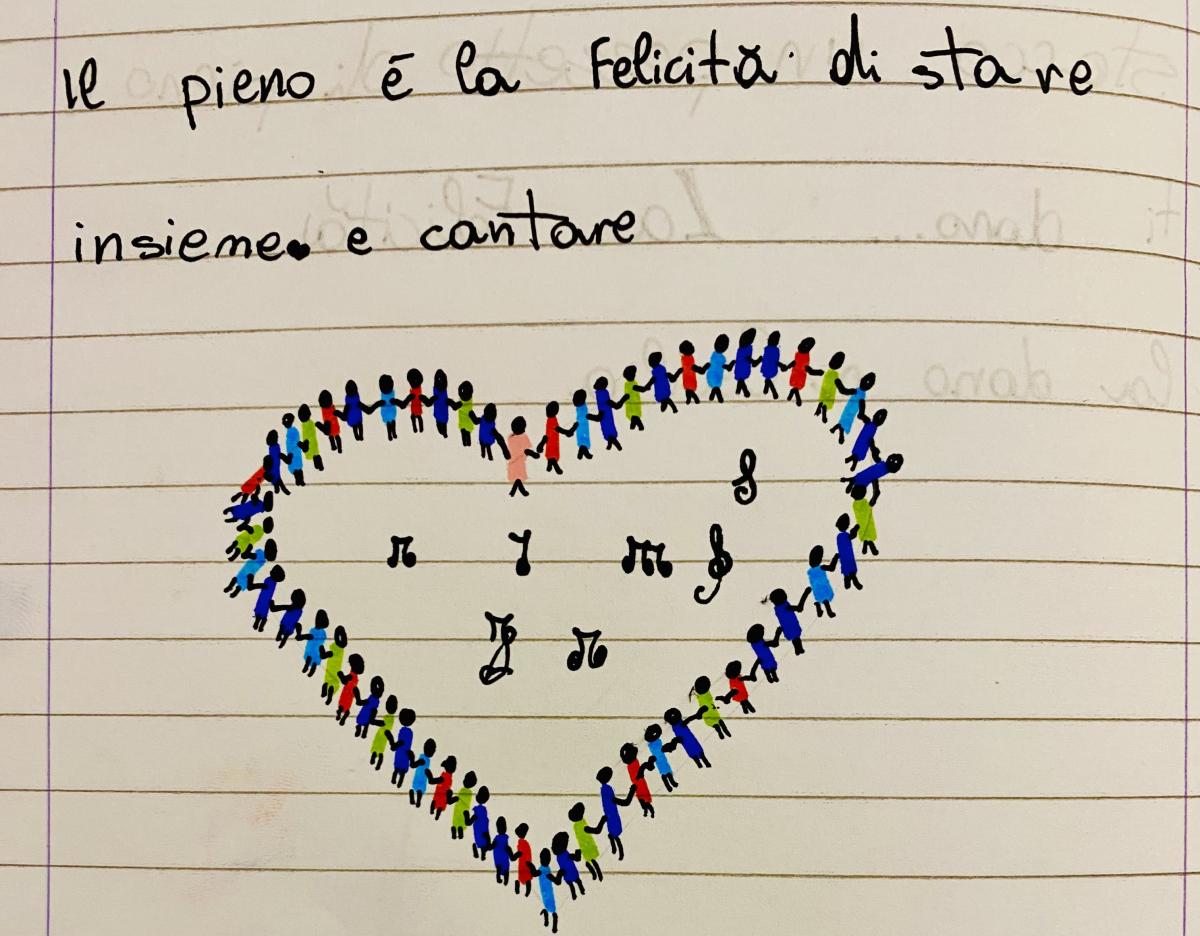 Il pieno é la Felicità di stare
insieme e cantare